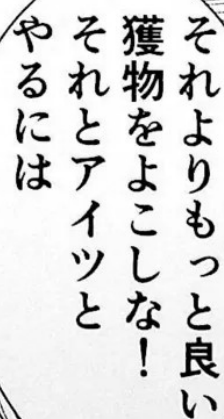 それよりもっと良い
獲物をよこしな！
それとアイツと
やるには